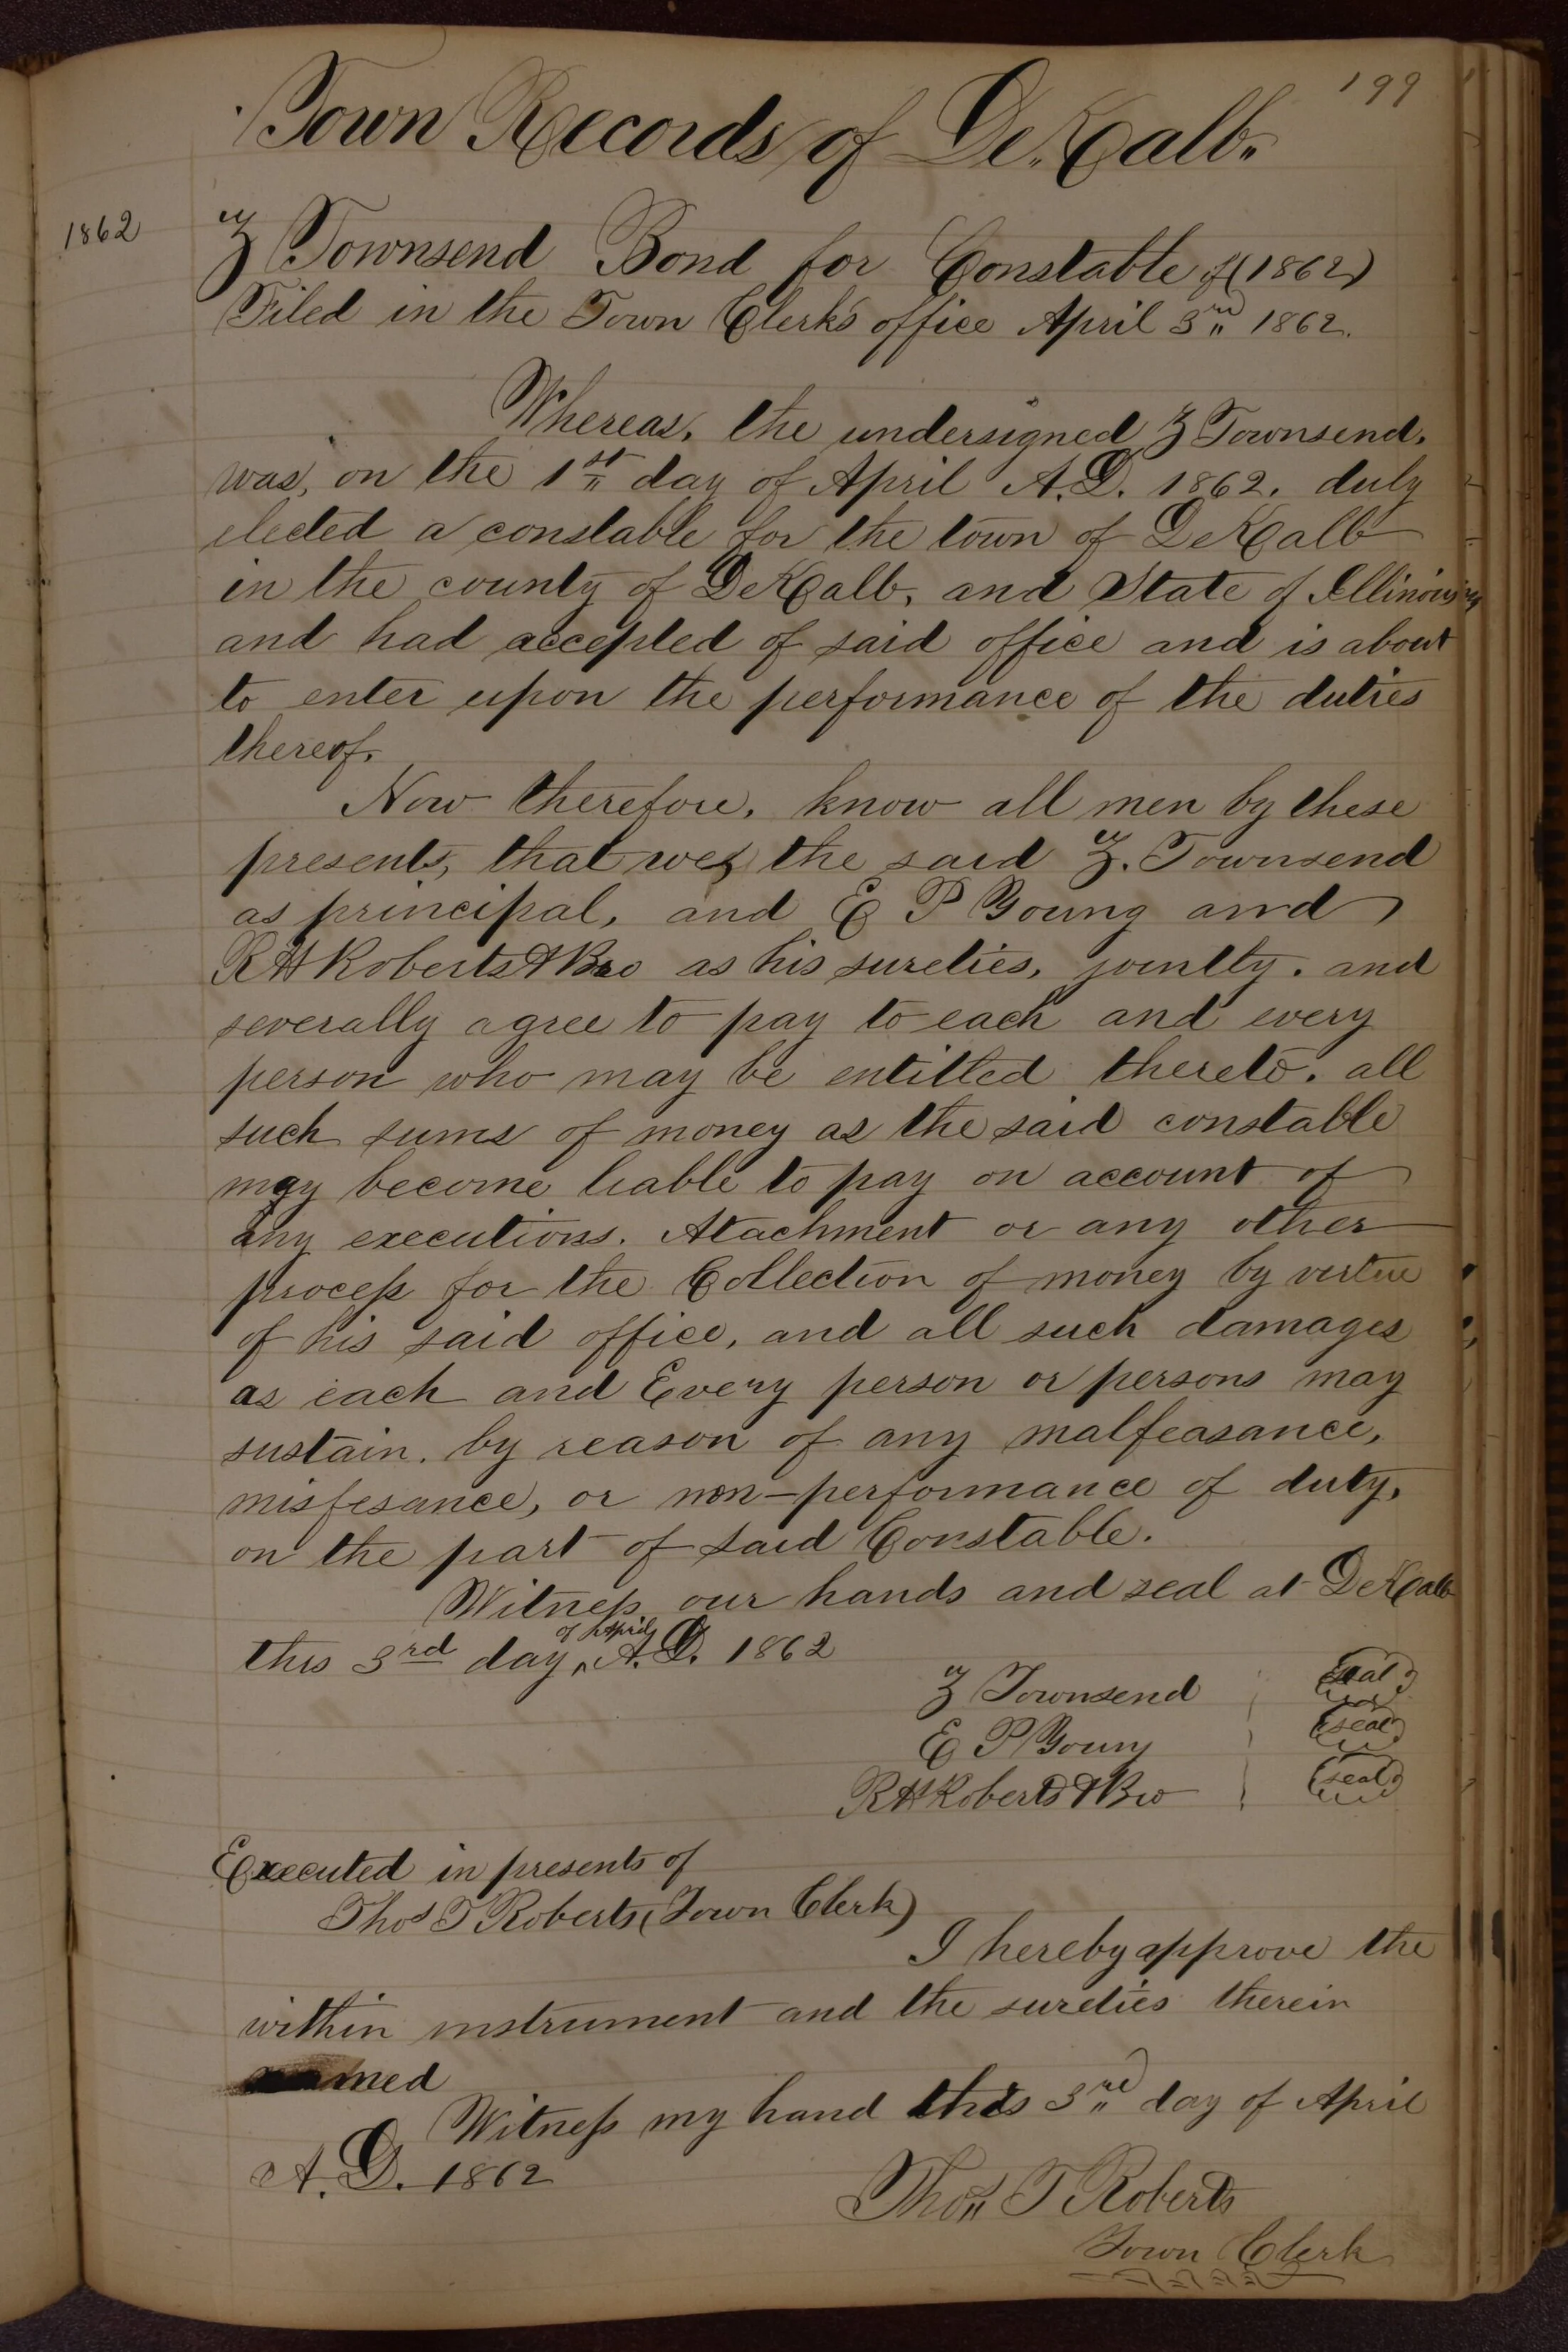 199
Town Records of De.Kalb.
1862
Z Townsend Bond for Constable of (1862)
Filed in the Town Clerk's office April 3rd 1862.
Whereas, the undersigned Z Townsend,
was, on the 1st day of April A.D. 1862. duly
elected a constable for the town of DeKalb
in the county of DeKalb, and State of Illinois
and had accepted of said office and is about
to enter upon the performance of the duties
thereof.
Now therefore, know all men by these
presents, that we, the said Z. Townsend
as principal, and E P Young and
R H Roberts & Bro as his sureties, jointly. and
severally agree to pay to each and every
person who may be entitled thereto. all
such sums of money as the said constable
may become liable to pay on account of
any executions. Atachment or any other
process for the Collection of money by virtue
of his said office, and all such damages
as each and Every person or persons may
sustain. by reason of any malfeasance,
misfesance, or non-performance of duty,
on the part of said Constable.
Witness our hands and seal at DeKalb
this 3rd day of April A.D. 1862
Z Townsend (seal)
E P Young (seal)
R H Roberts & Bro (seal)
Executed in presents of
Thos T Roberts (Town Clerk)
I hereby approve the
within instrument and the sureties therein
named
Witness my hand this 3rd day of April
A.D. 1862
Thos T Roberts
Town Clerk